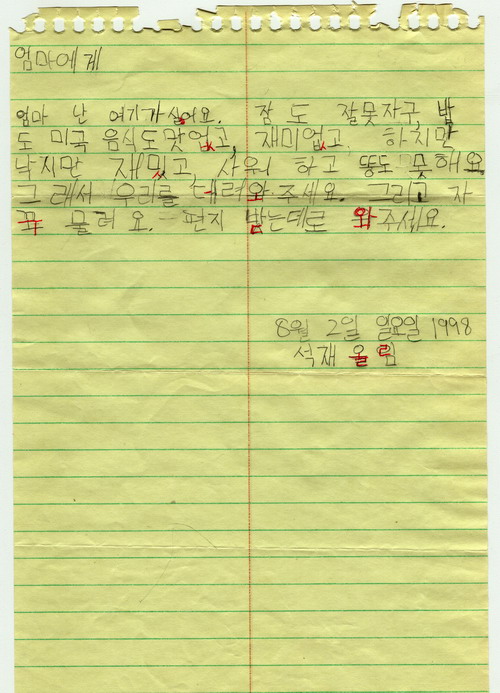 엄마에게
엄마 난 여기가 싫어요. 잠 도 잘못자구, 밥
도 미국 음식도맛업고, 재미업고, 하치만
낙지만 재밋고, 샤워 하고 똥도 못해요.
그 래서 우리를 데려와 주세요. 그리고 자
꾸 물려 요. 편지 받는데로 와주세요.
8월 2일 일요일 1998
석재 올림